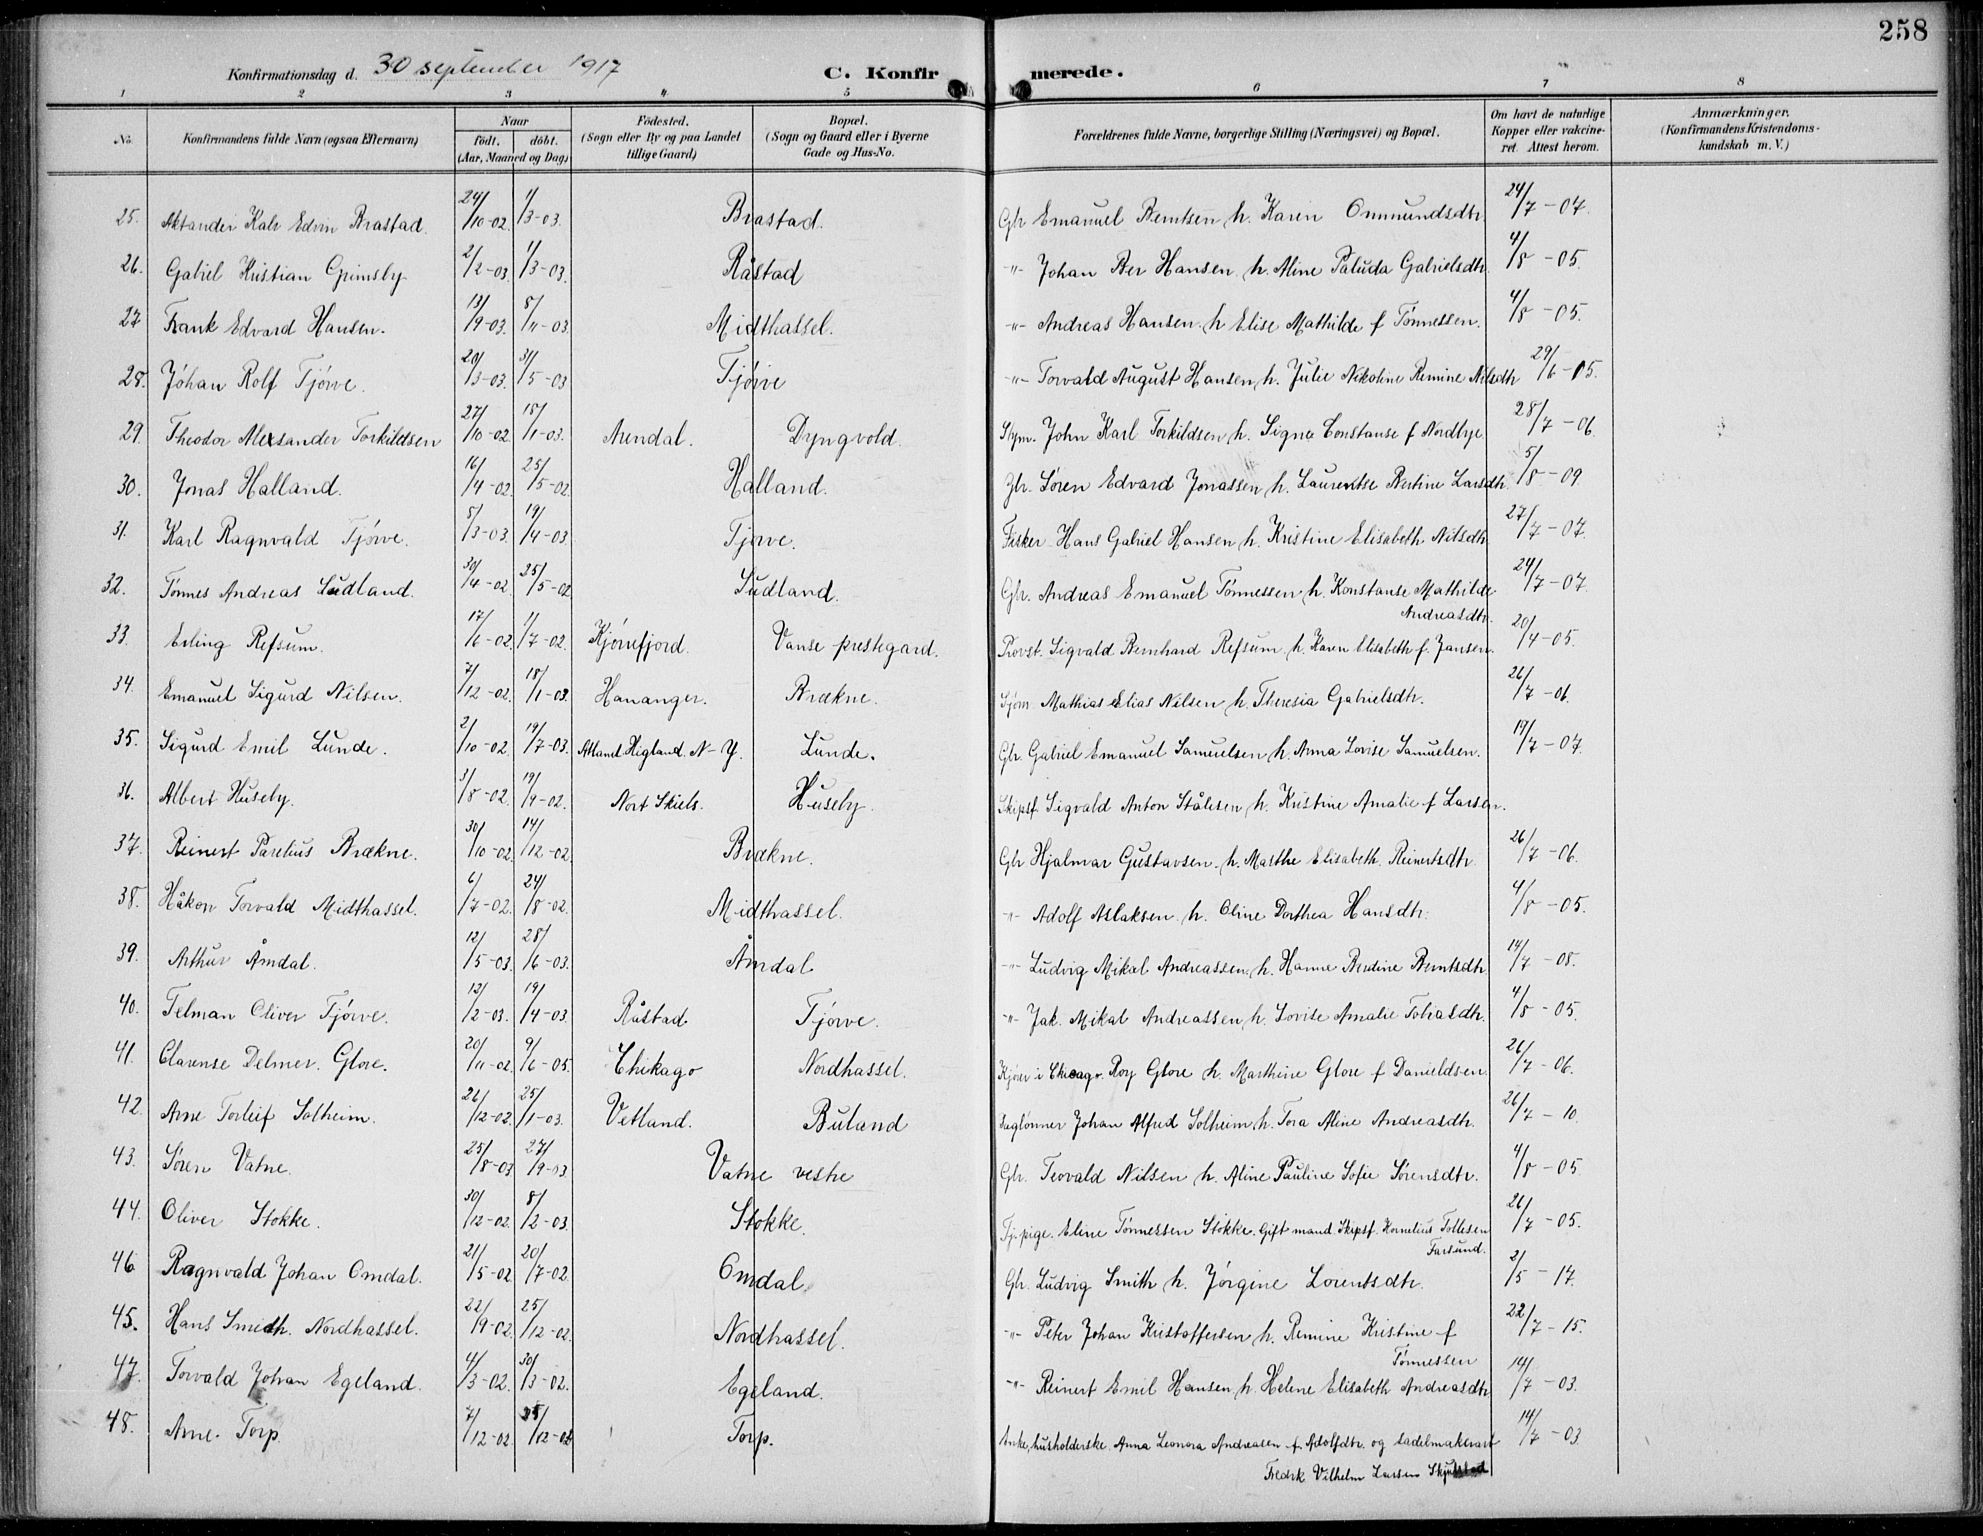 258
Konfirmationsdag d. 30 september 1917 C. Konfirmerede.
1 2 3 4 5 6 7 8
No. Konfirmandens fulde Navn (ogsaa Efternavn) Naar født. døbt. (Aar, Maaned og Dag) Fødested. (Sogn eller By og paa Landet tillige Gaard) Bopæl. (Sogn og Gaard eller i Byerne Gade og Hus-No. Forældrenes fulde Navne, borgerlige Stilling (Næringsvei) og Bopæl. Om havt de naturlige Kopper eller vakcineret. Attest herom. Anmærkninger. (Konfirmandens Kristendomskundskab m. V.)
25. Edvin Brastad. 24/10-02. 1/3-03. Brastad. Gbr Emanuel Berntsen h. Karen Ommundsdtr. 24/7-07.
26. Gabriel Kristian Grimsby 2/2-03. 1/3-03. Råstad -"- Johan Ber Hansen h. Aline Paluda Gabrielsdtr. 4/8-05.
27 Frank Edvard Hansen. 13/9-03. 8/11-03. Midthassel. -"- Andreas Hansen h Elise Mathilde f Tønnessen. 4/8-05.
28. Johan Rolf Tjørve. 20/3-03. 31/5-03 Tjørve -"- Torvald August Hansen h. Julie Nikoline Remine Nilsdtr 29/6-05.
29. Theodor Alexsander Torkildsen 27/10-02. 18/1-03. Arendal. Dyngvold. Skpm. John Karl Torkildsen h. Signe Constanse f Nordbye. 28/7-06.
30. Jonas Halland. 16/4-02. 25/5-02. Halland. Gbr. Søren Edvard Jonassen h. Laurentse Bertine Larsdtr. 5/8-09
31. Karl Ragnvald Tjørve. 8/3-03. 19/4-03 Tjørve. Fisker Hans Gabriel Hansen h. Kristine Elisabeth Nilsdtr. 27/7-07.
32. Tønnes Andreas Sudland. 30/4-02. 25/5-02 Sudland. Gbr. Andreas Emanuel Tønnessen h. Konstanse Mathilde Andreasdtr. 24/7-07.
33. Erling Refsum. 17/6-02. 1/7-02. Kjørefjord. Vanse prestegard. Provst. Sigvald Bernhard Refsum h. Karen Elisabeth f. Jansen. 20/4-05.
34. Emanuel Sigurd Nilsen. 7/12-02. 18/1-03. Hananger. Brækne. Sjøm. Mathias Elias Nilsen h. Theresia Gabrielsdtr. 26/7-06.
35. Sigurd Emil Lunde. 2/10-02. 19/7-03. N-Y. Lunde. Gbr Gabriel Emanuel Samuelsen h. Anna Lovise Samuelsen. 19/7-07.
36. Albert Huseby. 3/8-02. 19/9-02. Nort Skiels. Huseby. Skipsf. Sigvald Anton Stålesen h. Kristine Amalie f Larsen.
37. Reinert Parelius Brækne. 30/10-02. 14/12-02. Brækne. Gbr Hjalmar Gustavsen. h. Marthe Elisabeth Reinertsdtr. 26/7-06.
38. Håkon Torvald Midthassel. 6/7-02. 24/8-02. Midthassel. -"- Adolf Aslaksen h. Oline Dorthea Hansdtr. 4/8-05.
39. Arthur Åmdal. 12/5-03. 28/6-03. Åmdal -"- Ludvig Mikal Andreassen. h. Hanne Berdine Berntsdtr. 14/7-08.
40. Telman Oliver Tjørve. 12/2-03. 19/4-03. Råstad Tjørve. -"- Jak. Mikal Andreassen h. Lovise Amalie Tobiasdtr. 4/8-05.
41. Clarense Delmer. Glore. 20/11-02. 9/6-05. Chikago Nordhassel. Kjører i Chicago. Roy Glore h. Marthine Glore f Danieldsen. 26/7-06.
42. Arne Torleif Solheim. 26/12-02. 25/1-03. Vetland. Buland Daglønner Johan Alfred Solheim h. Tora Aline Andreasdtr. 26/7-10.
43. Søren Vatne. 25/8-03 27/9-03 Vatne vestre Gbr. Teovald Nilsen h. Aline Pauline Sofie Sørensdtr. 4/8-05.
44. Oliver Stokke. 30/12-02. 8/2-03. Stokke. Tj.pige. Eline Tønnessen Stokke. Gift mand Skipsf. Kornelius Tollesen Farsund. 26/7-05.
46 Ragnvald Johan Omdal. 21/5-02 20/7-02. Omdal Gbr. Ludvig Smith h. Jørgine Lorentsdtr. 2/5-17.
45. Hans Smith. Nordhassel. 22/9-02. 25/12-02. Nordhassel. -"- Peter Johan Kristoffersen h. Remine Kristine f Tønnessen 22/7-15.
47. Torvald Johan Egeland. 4/3-02. 30/3-02. Egeland. -"- Reinert Emil Hansen h. Helene Elisabeth Andreasdtr. 14/7-03.
48. Arne. Torp 7/12-02. 25/12-02 Torp. Enke, husholderske Anna Leonora Andreasen f. Adolfdtr. og sadelmaker Fredrk Vilhelm Larsen 14/7-03